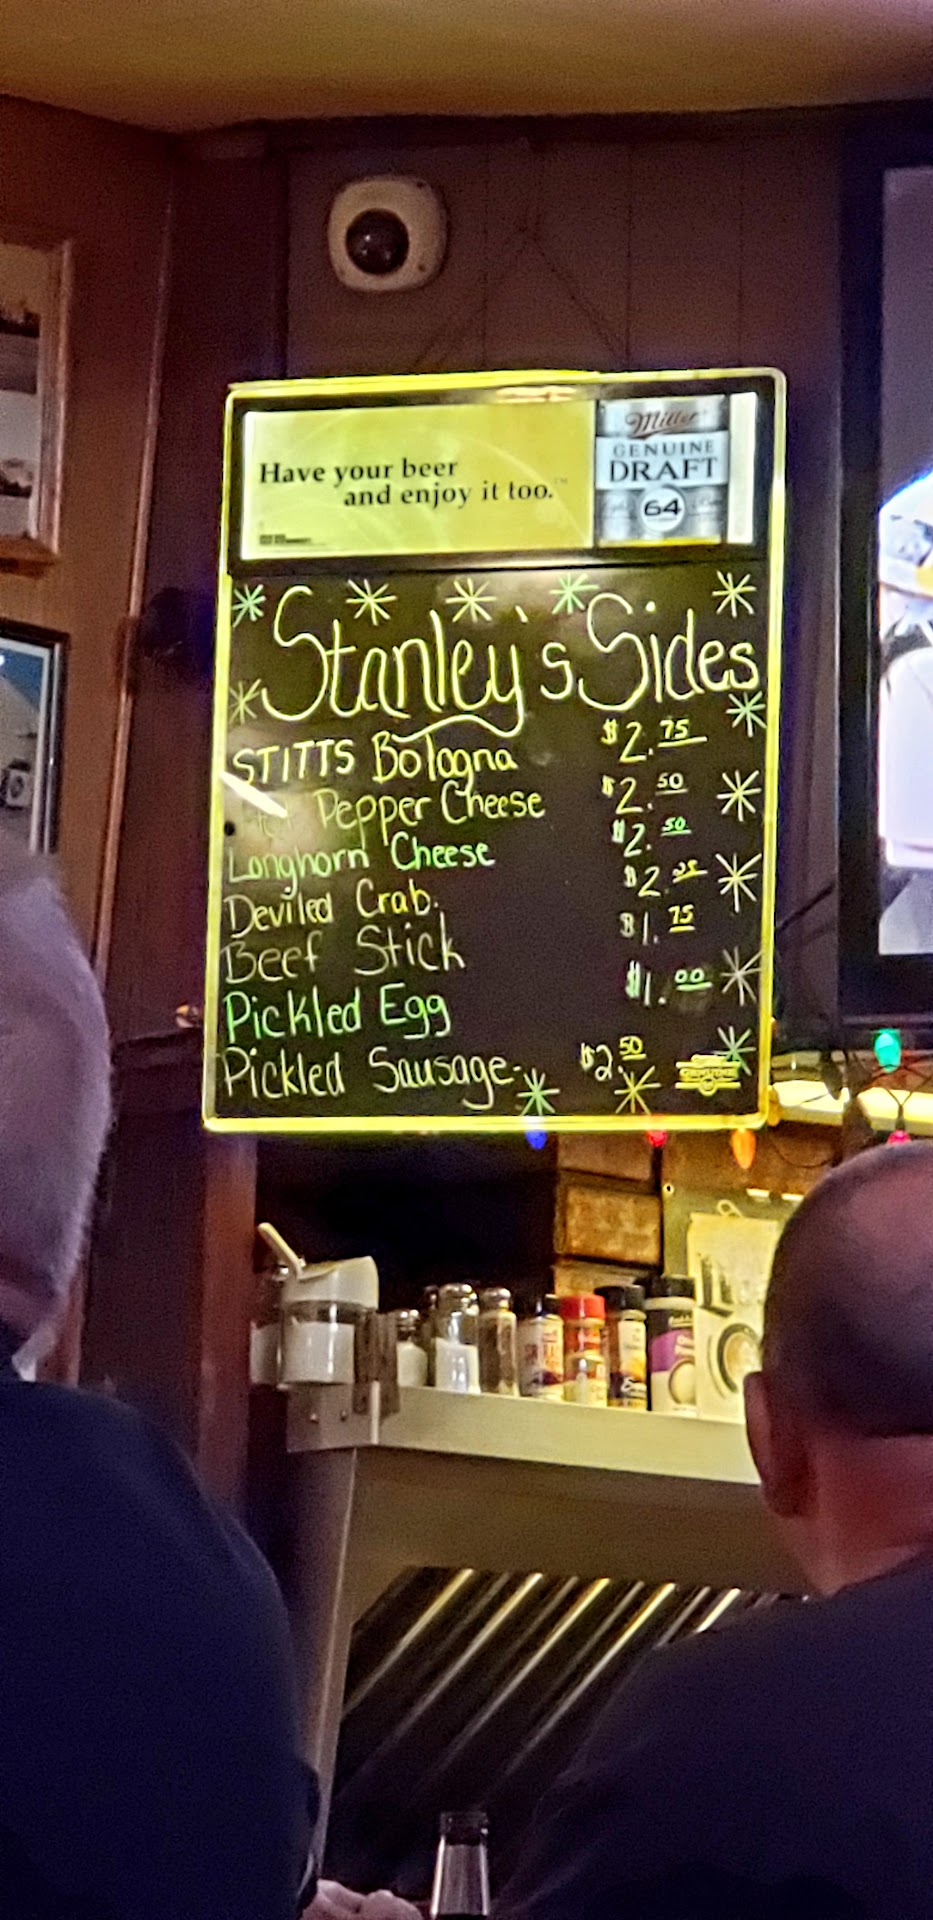 Have your beer
and enjoy it too.™
Miller
GENUINE
DRAFT
64
Stanley's Sides
STITTS Bologna $2.75
Pepper Cheese $2.50
Longhorn Cheese $2.50
Deviled Crab. $2.
Beef Stick $1.75
Pickled Egg $1.00
Pickled Sausage- $2.50
GENUINE